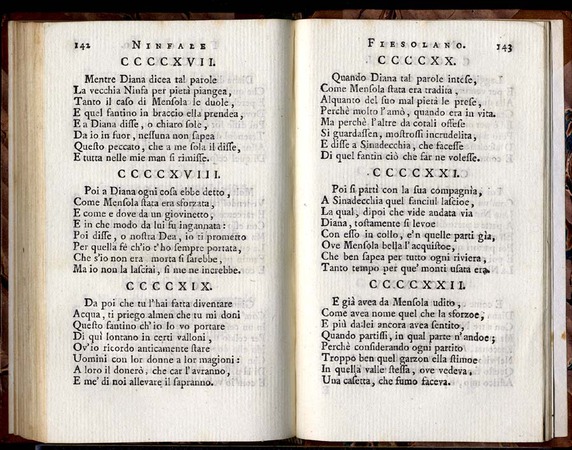 142 NINFALE
CCCCXVII.
Mentre Diana dicea tal parole
La vecchia Ninfa per pietà piangea,
Tanto il caso di Mensola le duole,
E quel fantino in braccio ella prendea,
E a Diana disse, o chiaro sole,
Da io in fuor, nessuna non sapea
Questo peccato, che a me sola il disse,
E tutta nelle mie man si rimisse.
CCCCXVIII.
Poi a Diana ogni cosa ebbe detto,
Come Mensola stata era sforzata,
E come e dove da un giovinetto,
E in che modo da lui fu ingannata:
Poi disse, o nostra Dea, io ti prometto
Per quella fè ch'io t'ho sempre portata,
Che s'io non era morta si sarebbe,
Ma io non la lasciai, sì me ne increbbe.
CCCCXIX.
Da poi che tu l'hai fatta diventare
Acqua, ti priego almen che tu mi doni
Questo fantino ch'io lo vo portare
Di quì lontano in certi valloni,
Ov'io ricordo anticamente stare
Uomini con lor donne a lor magioni:
A loro il donerò, che car l'avranno,
E me' di noi allevare il sapranno.
FIESOLANO. 143
CCCCXX.
Quando Diana tal parole intese,
Come Mensola stata era tradita,
Alquanto del suo mal pietà le prese,
Perchè molto l'amò, quando era in vita.
Ma perchè l'altre da cotali offese
Si guardassen, mostrossi incrudelita,
E disse a Sinadecchia, che facesse
Di quel fantin ciò che far ne volesse.
CCCCXXI.
Poi si partì con la sua compagnia,
A Sinadecchia quel fanciul lascioe,
La qual, dipoi che vide andata via
Diana, tostamente si levoe
Con esso in collo, e'n quelle parti gìa,
Ove Mensola bella l'acquistoe,
Che ben sapea per tutto ogni riviera,
Tanto tempo per que' monti usata era.
CCCCXXII.
E già avea da Mensola udito,
Come avea nome quel che la sforzoe,
E più da lei ancora avea sentito,
Quando partissi, in qual parte n'andoe;
Perchè considerando ogni partito
Troppo ben quel garzon ella stimoe
In quella valle stessa, ove vedeva,
Una casetta, che fumo faceva.